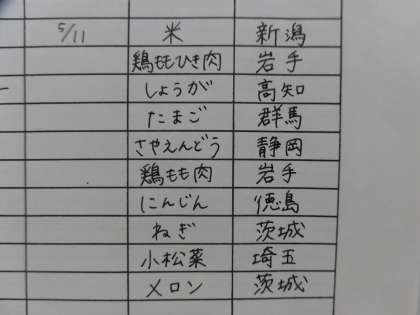 5/11 米 新潟
鶏ももひき肉 岩手
しょうが 高知
たまご 群馬
さやえんどう 静岡
鶏もも肉 岩手
にんじん 徳島
ねぎ 茨城
小松菜 埼玉
メロン 茨城